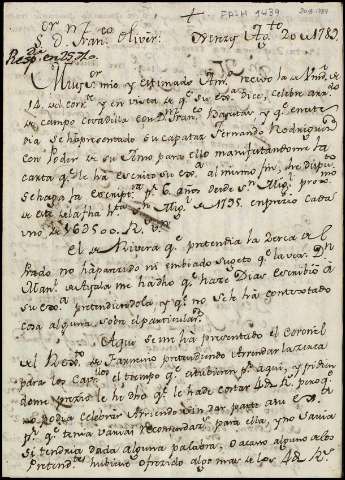 +
FPIH 1439
S.or D.n Fran.co Oliver.
Orenes Ag.to 20 de 1789.
Resp.da en 25 d.ho.
Muy s.or mio y estimado Am.o recivo la de Vm.d de
14. del corr.te y en vista de q.e su ex.a dice, celebre
de campo con D.n Fran.co y q.e en este
dia se ha presentado su capataz Fernando Rodriguez
con Poder de su Amo para ello manifestandome la
carta q.e le ha escrito su ex.a al mismo fin, he dispu.to
se haga la escript.a p.r 6. años desde s.n Mig.l prox.mo
de este de la fha h.ta s.n Mig.l de 1795. en precio cada
uno de 162500. R.s V.n
El de Rivera q.e pretendia la Zerca de
Prado no ha parecido ni embiado sugeto q.e la vea. D.n
Man.l de Ayala me ha dho q.e haze Dias escribió á
su ex.a pretendiendola y q.e no se le ha contestado
cosa alguna sobre el particular.
Aqui se me ha presentado el Coronel
del Rex.to de Farnesio pretendiendo Arrendar la Zerca
para los Cav.llos el tiempo q.e estubieren p.r aqui, y pidien
dome precio le he dho q.e le hade costar 4@ R.s pero q.e
no podia celebrar Arriendo sin dar parte a su ex.a
p.r q.e tenia varias recomendas. para ella, y no savia
si tendria dada alguna palabra, o acaso alguno de los
Pretend.tes hubiese ofrezido algo mas de los 4@ R.s